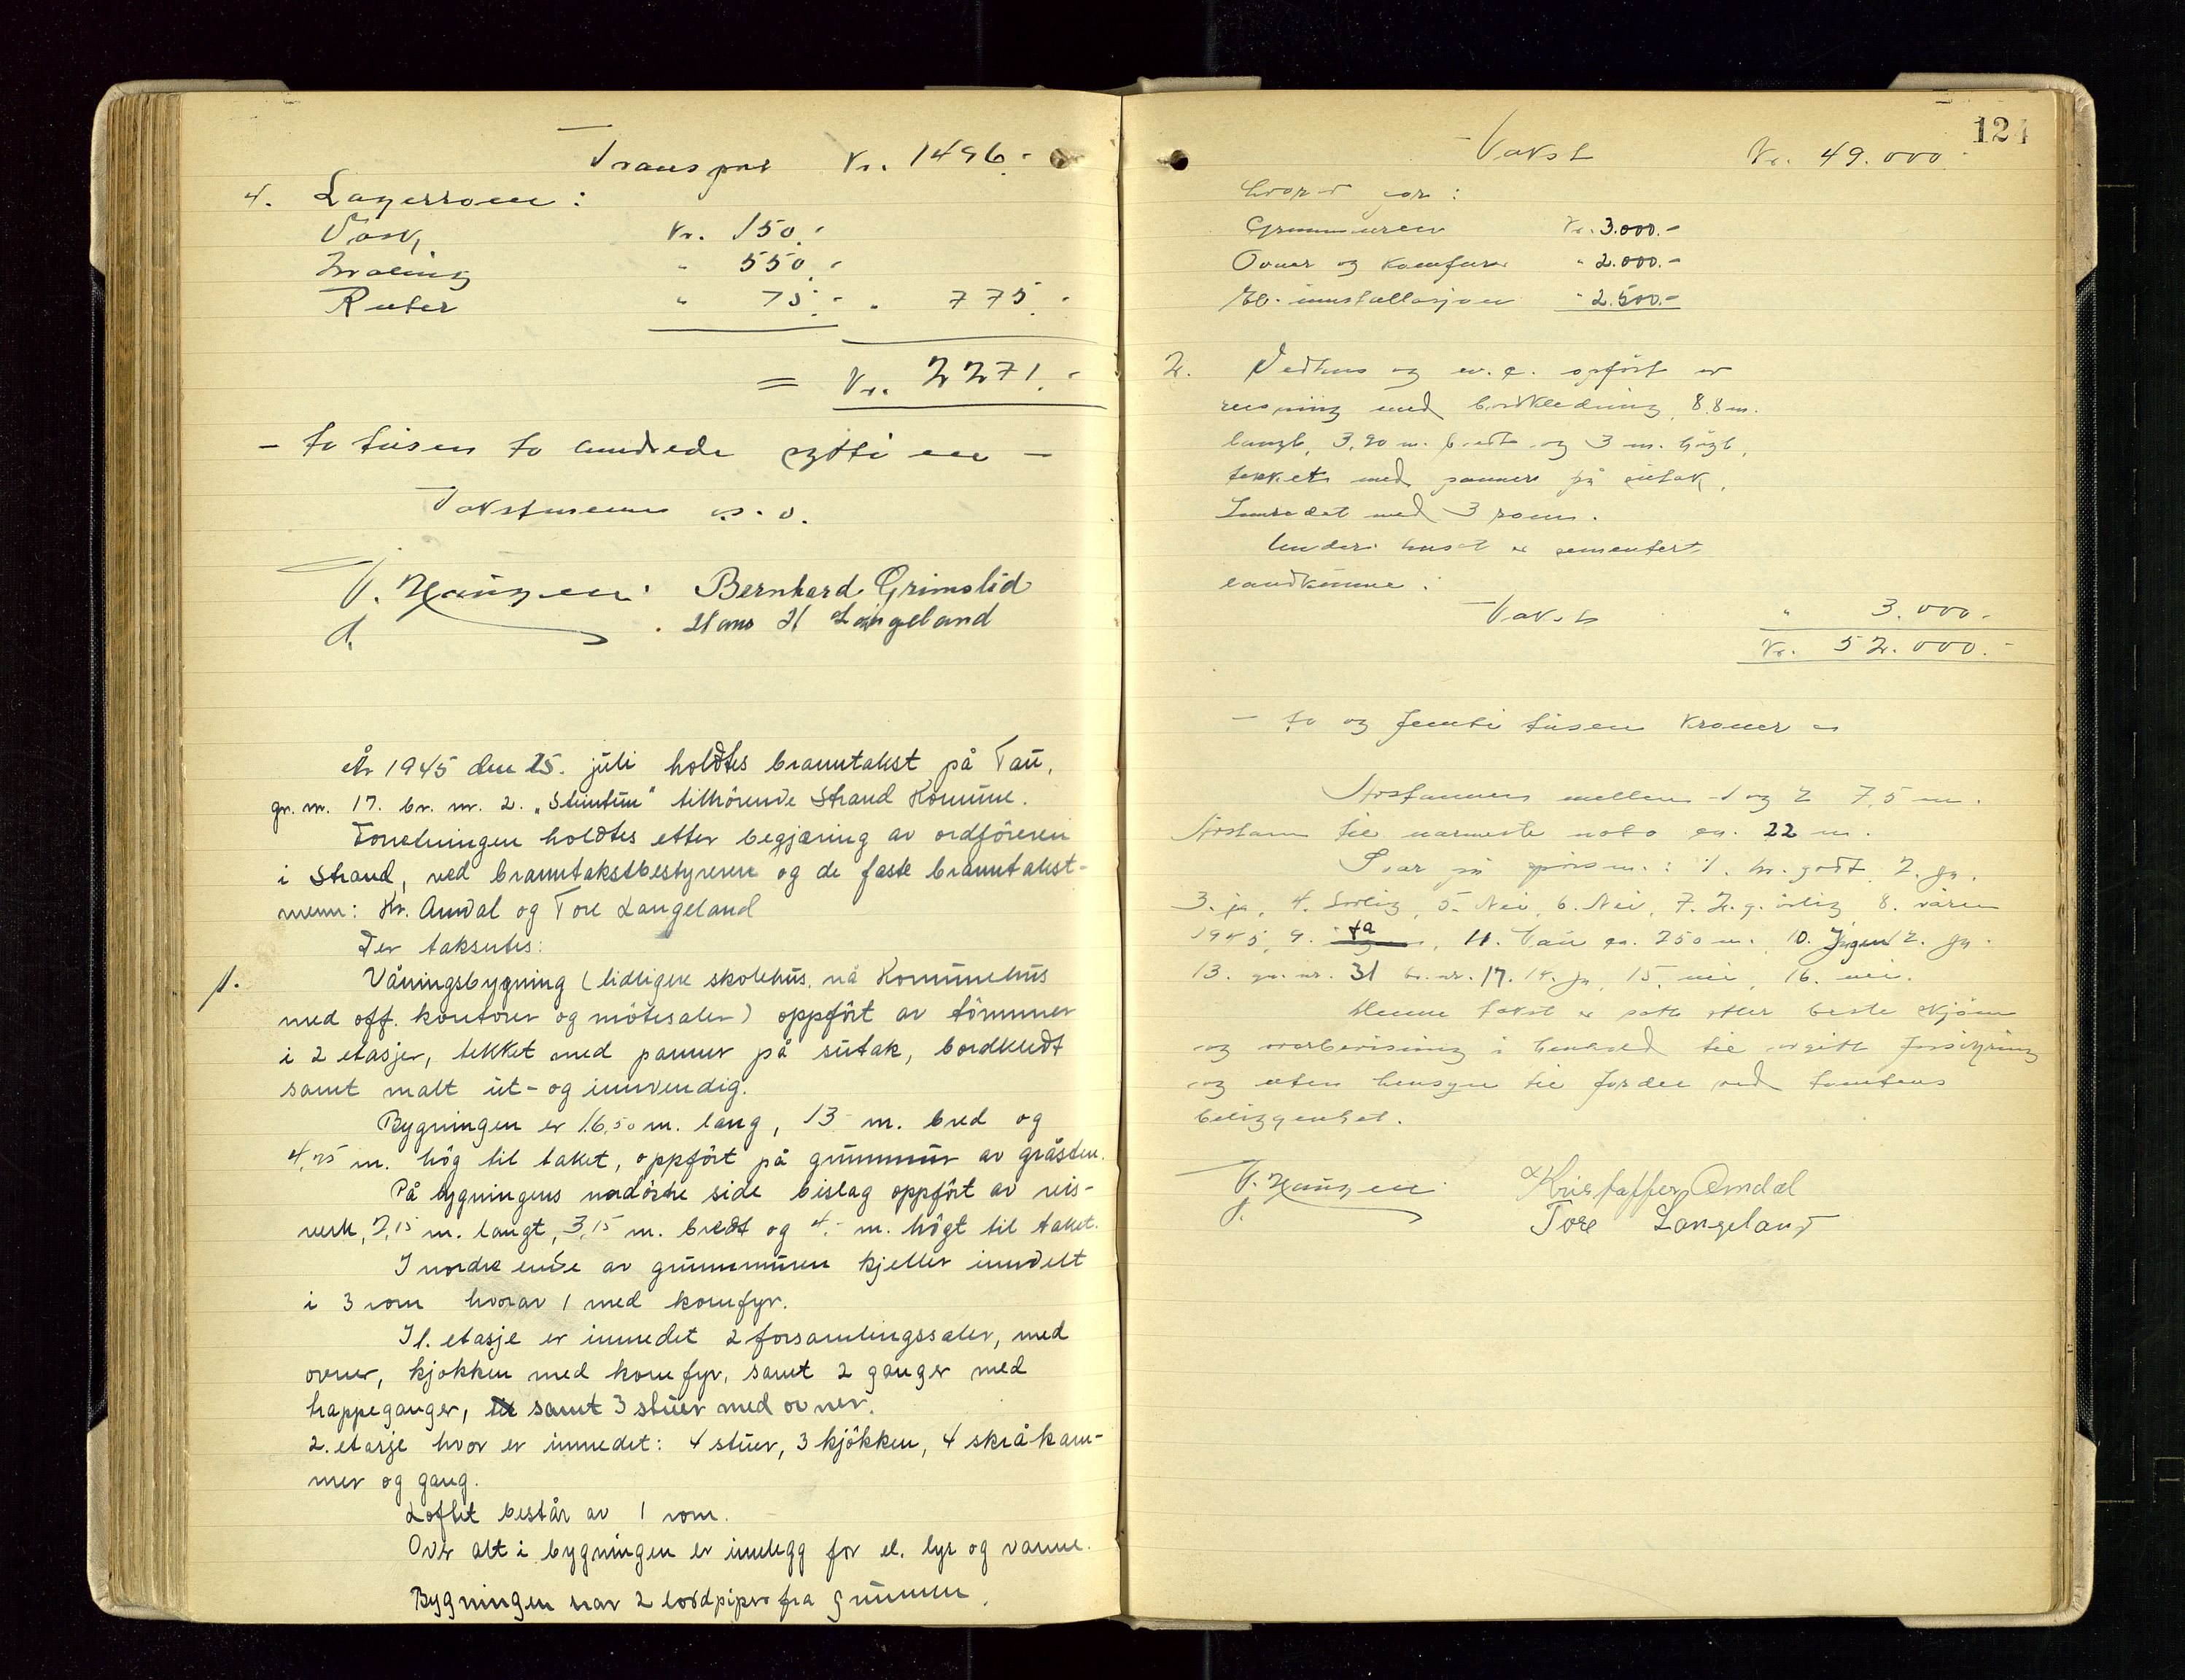 Transport Kr. 1496.-
4. Lagerrom:
Tak, Kr. 150.-
Maling " 550.-
Ruter " 75.- " 775.-
= Kr. 2271.-
- to tusen to hundrede sytti en -
Takstmenn
Bernhard Grimslid
Hans H Langeland
År 1945 den 25. juli holdtes branntakst på Tau,
gr. nr. 17. br. nr. 2. "Steintun" tilhörende Strand Komune.
Forretningen holdtes etter begjæring av ordföreren
i Strand, ved branntakstbestyreren og de faste branntakst-
menn: Kr. Amdal og Tore Langeland
Der taksertes:
1. Våningsbygning (tidligere skolehus, nå Kommunehus
med off. kontorer og mötesaler) oppfört av tömmer
i 2 etasjer, tekket med panner på sutak, bordkledt
samt malt ut- og innvendig.
Bygningen er 16,50 m. lang, 13 m. bred og
4,75 m. hög til taket, oppfört på grunnmur av gråsten.
På bygningens nordöstre side bislag oppfört av reis-
verk, 7,15 m. langt, 3,15 m. bredt og 4.- m. högt til taket.
I nordre ende av grunnmuren kjeller inndelt
i 3 rom hvorav 1 med komfyr.
I 1. etasje er innredet 2 forsamlingssaler, med
ovner, kjökken med komfyr, samt 2 ganger med
trappeganger, samt 3 stuer med ovner.
2. etasje hvor er innredet: 4 stuer, 3 kjökken, 4 skråkam-
mer og gang.
Loftet består av 1 rom.
Over alt i bygningen er innlegg for el. lys og varme.
Bygningen har 2 lodpiper fra grunnen.
124
Takst Kr. 49.000.-
hvorav for:
Grunnmuren Kr. 3.000.-
Ovner og komfurer " 2.000.-
El. innstallasjon " 2.500.-
2. Vedhus og w.c. opfört av
reisning med bordkledning, 8.8 m.
langt, 3,90 m. bredt og 3 m. högt,
tekket med panner på sutak.
Innredet med 3 rom.
Under huset er sementert
landkumme.
Takst " 3.000.-
Kr. 52.000.-
- to og femti tusen kroner -
Avstanden mellem 1 og 2 7,5 m.
Avstann til narmeste nabo ca. 22 m.
Svar på spörsm.: 1. godt, 2. ja.
3. ja, 4. 5. Nei, 6. Nei, 7. 8. våren
1945, 9. ja, 11. Tau ca. 250 m. 10. Ingen 12. ja.
13. gr. nr. 31 br. nr. 17. 14. ja, 15. nei, 16. nei.
Denne takst er satt etter beste skjönn
og overbevisning i henhold til avgitt forsikring
og uten hensyn til fordel ved tomtens
beliggenhet.
Kristoffer Amdal
Tore Langeland